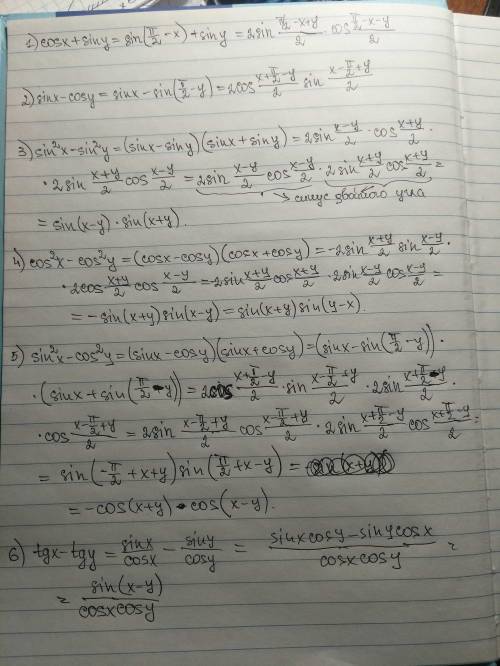 1) cosx + siny = sin(π/2 - x) + siny = 2sin (π/2 - x + y)/2 · cos (π/2 - x - y)/2
2) sinx - cosy = sinx - sin(π/2 - y) = 2cos (x + π/2 - y)/2 sin (x - π/2 + y)/2
3) sin²x - sin²y = (sinx - siny)(sinx + siny) = 2sin (x-y)/2 · cos (x+y)/2 ·
· 2sin (x+y)/2 cos (x-y)/2 = 2sin (x-y)/2 cos (x-y)/2 · 2sin (x+y)/2 cos (x+y)/2 =
→ синус двойного угла
= sin(x-y) · sin(x+y).
4) cos²x - cos²y = (cosx - cosy)(cosx + cosy) = -2sin (x+y)/2 sin (x-y)/2 ·
· 2cos (x+y)/2 cos (x-y)/2 = -2sin (x+y)/2 cos (x+y)/2 · 2sin (x-y)/2 cos (x-y)/2 =
= -sin(x+y) sin(x-y) = sin(x+y) sin(y-x).
5) sin²x - cos²y = (sinx - cosy)(sinx + cosy) = (sinx - sin(π/2 - y)) ·
· (sinx + sin(π/2 - y)) = 2cos (x + π/2 - y)/2 · sin (x - π/2 + y)/2 · 2sin (x + π/2 - y)/2 ·
· cos (x - π/2 + y)/2 = 2sin (x - π/2 + y)/2 cos (x - π/2 + y)/2 · 2sin (x + π/2 - y)/2 cos (x + π/2 - y)/2 =
= sin(-π/2 + x + y) sin(π/2 + x - y) =
= -cos(x+y) · cos(x-y).
6) tgx - tgy = sinx/cosx - siny/cosy = (sinx cosy - siny cosx)/(cosx cosy) =
= sin(x-y)/(cosx cosy)